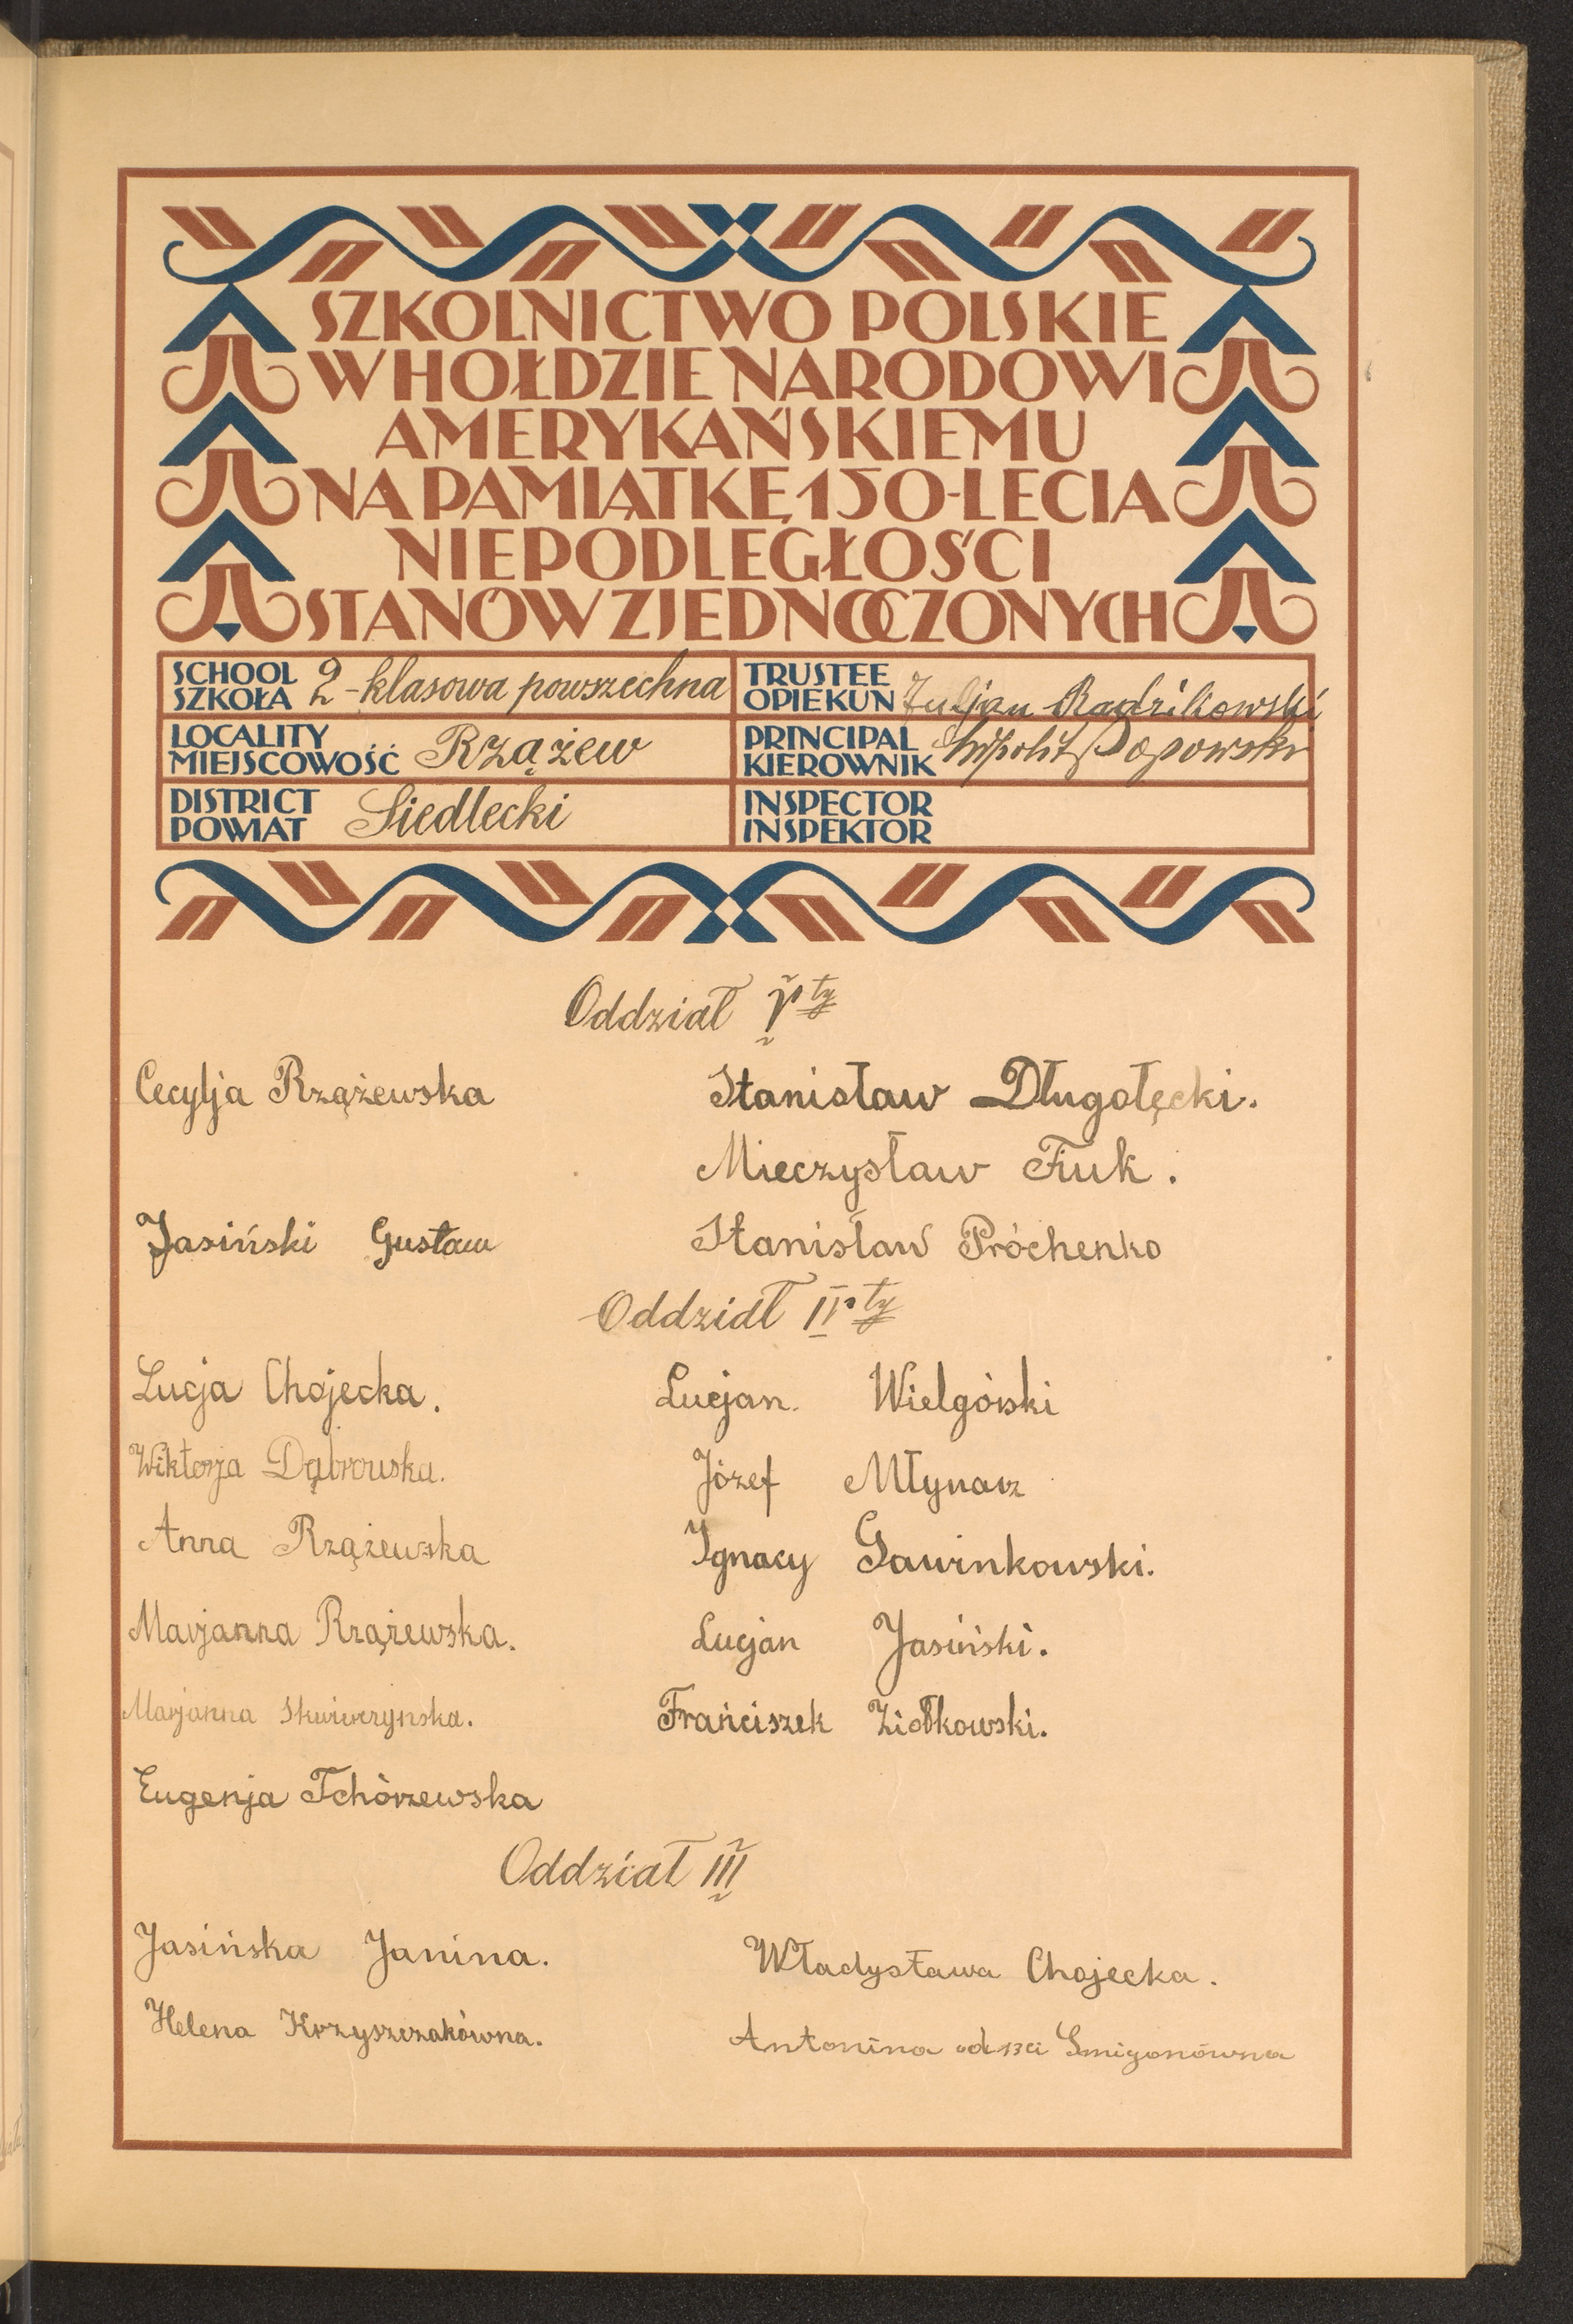 SZKOLNICTWO POLSKIE
W HOŁDZIE NARODOWI
AMERYKAŃSKIEMU
NA PAMIĄTKĘ 150-LECIA
NIEPODLEGŁOŚCI
STANÓW ZJEDNOCZONYCH
SCHOOL
SZKOŁA 2-klasowa powszechna
TRUSTEE
OPIEKUN Juljan Radzikowski
LOCALITY
MIEJSCOWOŚĆ Rzążew
PRINCIPAL
KIEROWNIK Hipolit Popowski
DISTRICT
POWIAT Siedlecki
INSPECTOR
INSPEKTOR
Oddział
Cecylja Rzążewska Stanisław Długołęcki.
Mieczysław Fiuk.
Jasiński Gustaw Stanisław Próchenko
Oddział II ty
Lucja Chojecka. Lucjan. Wielgórski
Wiktorja Dąbrowska. Józef Młynarz
Anna Rzążewska Ignacy Gawinkowski.
Marjanna Rzążewska. Lucjan Jasiński.
Marjanna Skwierczynska. Frańciszek Ziołkowski.
Eugenja Tchórzewska
Oddział III
Jasińska Janina. Władysława Chojecka.
Helena Krzyszczakówna. Antonina Smigonówna